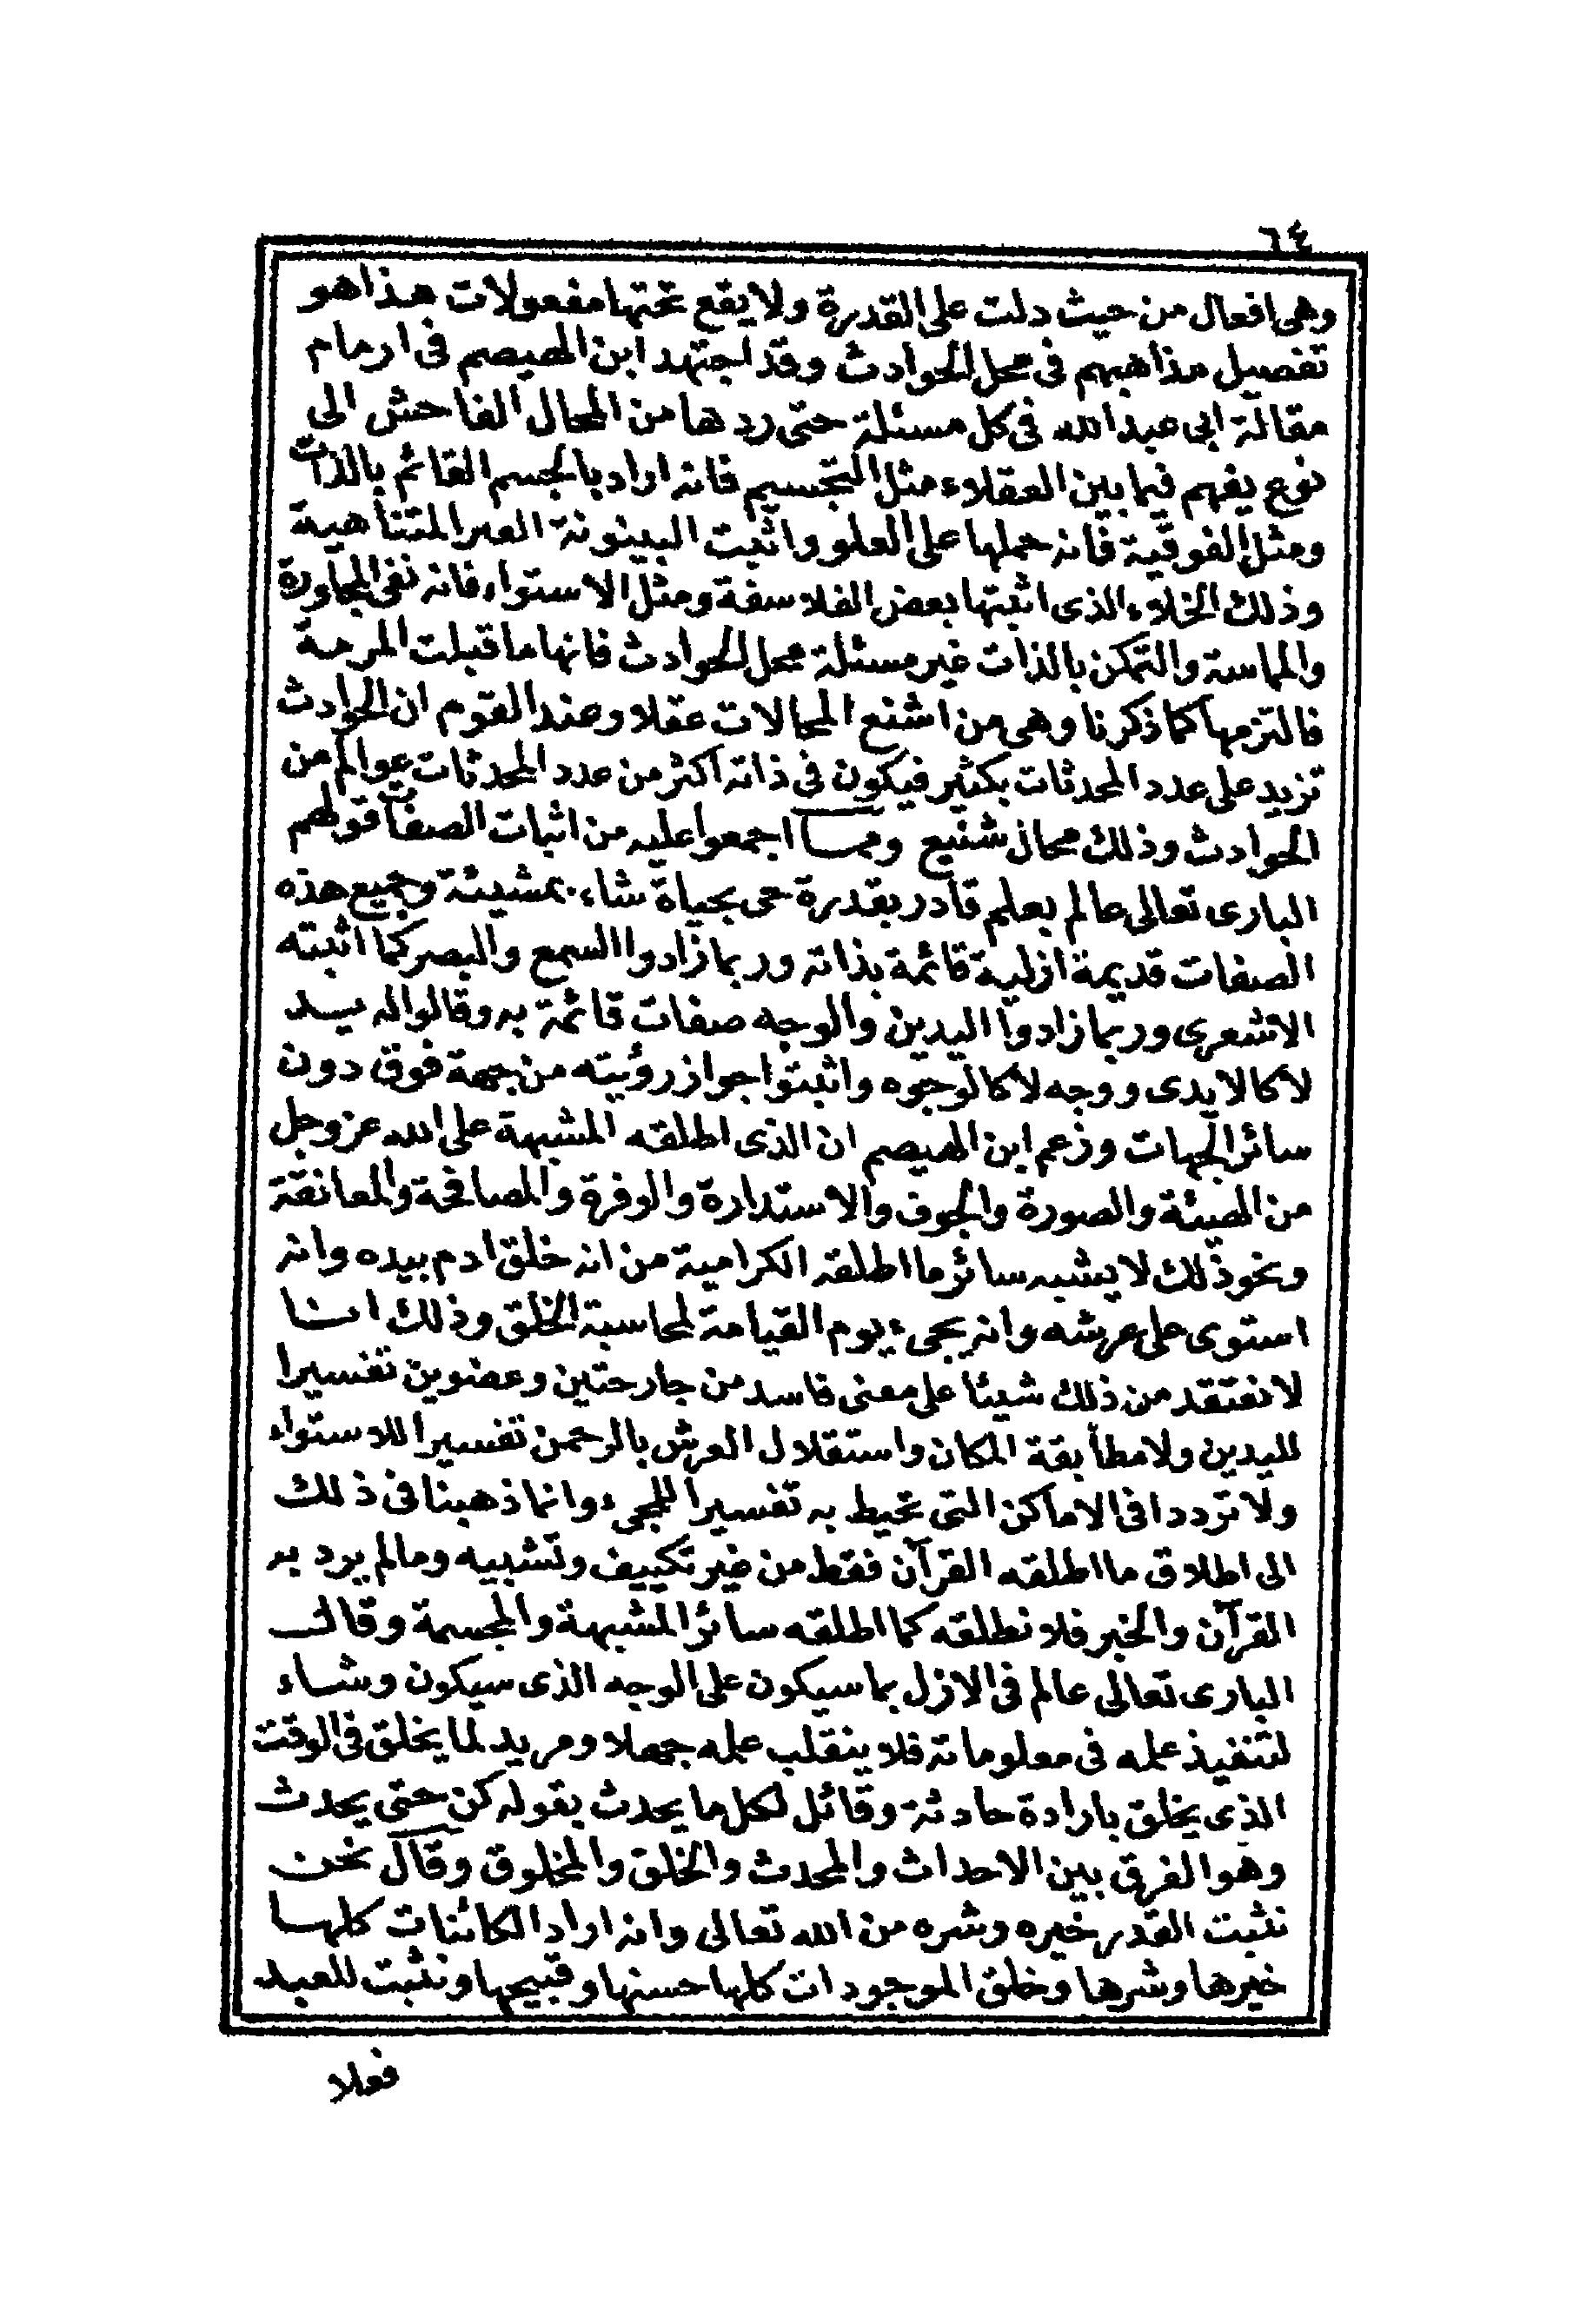 ٦٤
وهى افعال من حيث دلت على القدرة ولا يقع تحتها مفعولات هذا هو
تفصيل مذاهبهم فى محل الحوادث وقد اجتهد ابن الهيصم فى ارمام
مقالة ابى عبد الله فى كل مسئلة حتى ردها من المحال الفاحش الى
نوع يفهم فيما بين العقلاء مثل التجسيم فانه اراد بالجسم القائم بالذات
ومثل الفوقية فانه حملها على العلو واثبت البينونة الغير المتناهية
وذلك الخلاء الذى اثبتها بعض الفلاسفة ومثل الاستواء فانه نفى المجاورة
والمماسة والتمكن بالذات غير مسئلة محل الحوادث فانها ما قبلت المرمة
فالتزمها كما ذكرنا وهى من اشنع المحالات عقلا وعند القوم ان الحوادث
تزيد على عدد المحدثات بكثير فيكون فى ذاته اكثر من عدد المحدثات عوالم من
الحوادث وذلك محال شنيع ومما اجمعوا عليه من اثبات الصفات قولهم
البارى تعالى عالم بعلم قادر بقدرة حى بحياة شاء بمشيئة وجميع هذه
الصفات قديمة ازلية قائمة بذاته وربما زادوا السمع والبصر كما اثبته
الاشعرى وربما زادوا اليدين والوجه صفات قائمة به وقالوا له يد
لا كالايدى ووجه لا كالوجوه واثبتوا جواز رؤيته من جهة فوق دون
سائر الجهات وزعم ابن الهيصم ان الذى اطلقه المشبهة على الله عز وجل
من الهيئة والصورة والجوف والاستدارة والوفرة والمصافحة والمعانقة
ونحو ذلك لا يشبه سائر ما اطلقه الكرامية من انه خلق ادم بيده وانه
استوى على عرشه وانه يجىء يوم القيامة لمحاسبة الخلق وذلك انا
لا نعتقد من ذلك شيئا على معنى فاسد من جارحتين وعضوين تفسيرا
لليدين ولا مطابقة المكان واستقلال العرش بالرحمن تفسيرا للاستواء
ولا ترددا فى الاماكن التى تحيط به تفسيرا للمجىء وانما ذهبنا فى ذلك
الى اطلاق ما اطلقه القرآن فقط من غير تكييف وتشبيه وما لم يرد به
القرآن والخبر فلا نطلقه كما اطلقه سائر المشبهة والمجسمة وقال
البارى تعالى عالم فى الازل بما سيكون على الوجه الذى سيكون وشاء
لتنفيذ علمه فى معلوماته فلا ينقلب علمه جهلا ومريد لما يخلق فى الوقت
الذى يخلق بارادة حادثة وقائل لكل ما يحدث بقوله كن حتى يحدث
وهو الفرق بين الاحداث والمحدث والخلق والمخلوق وقال نحن
نثبت القدر خيره وشره من الله تعالى وانه اراد الكائنات كلها
خيرها وشرها وخلق الموجودات كلها حسنها وقبيحها ونثبت للعبد
فعلا